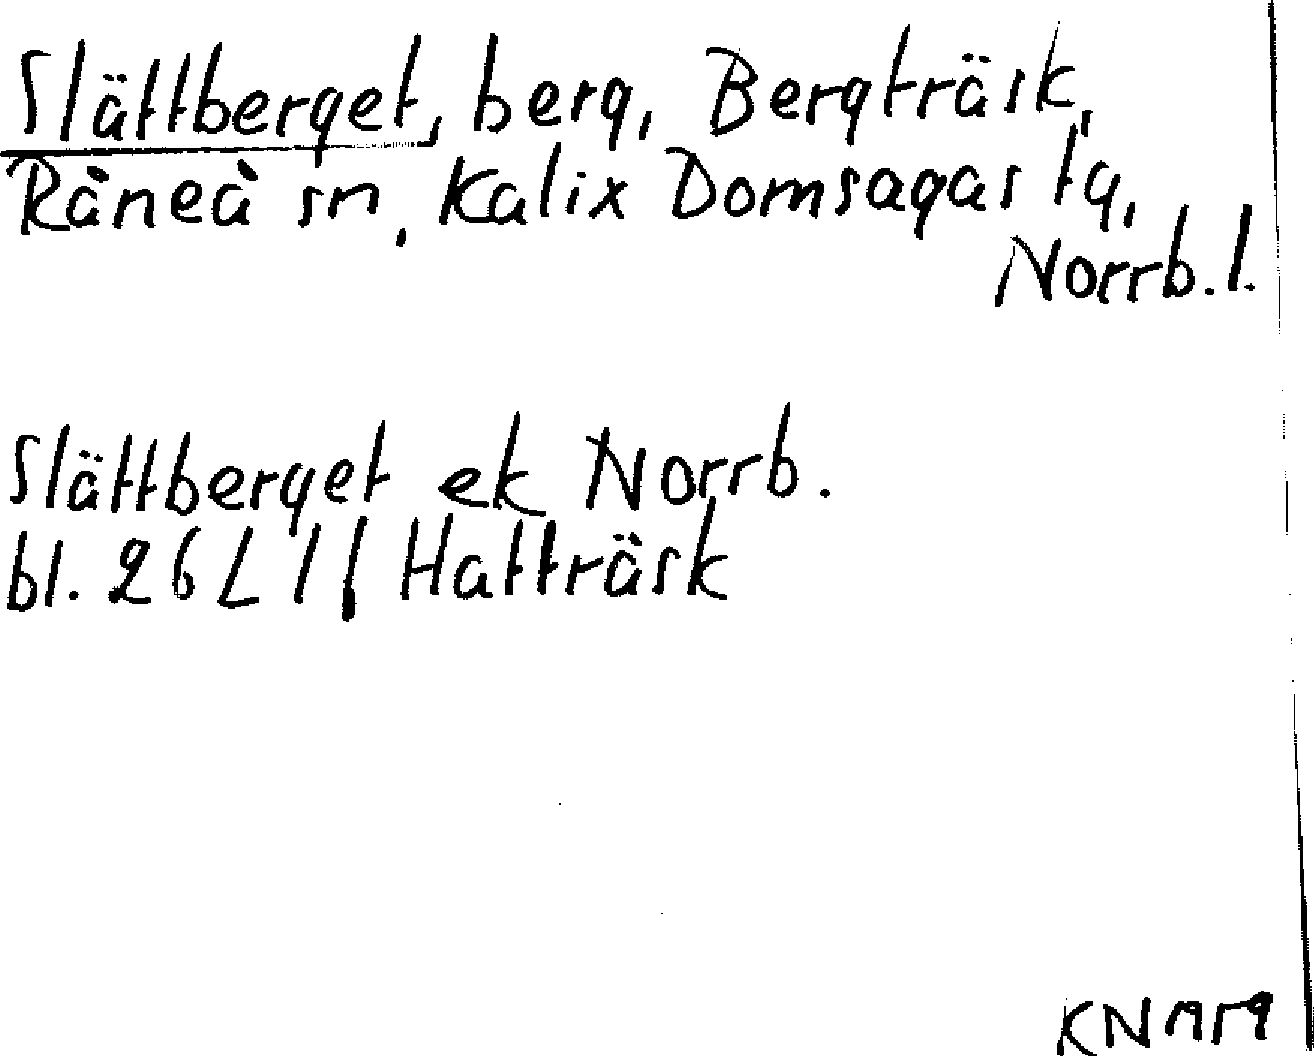 Slättberget, berg, Bergträsk,
Råneå sn, Kalix Domsagas tg,
Norrb. l.
Slättberget ek Norrb.
bl. 26 L 1 f Hatträsk